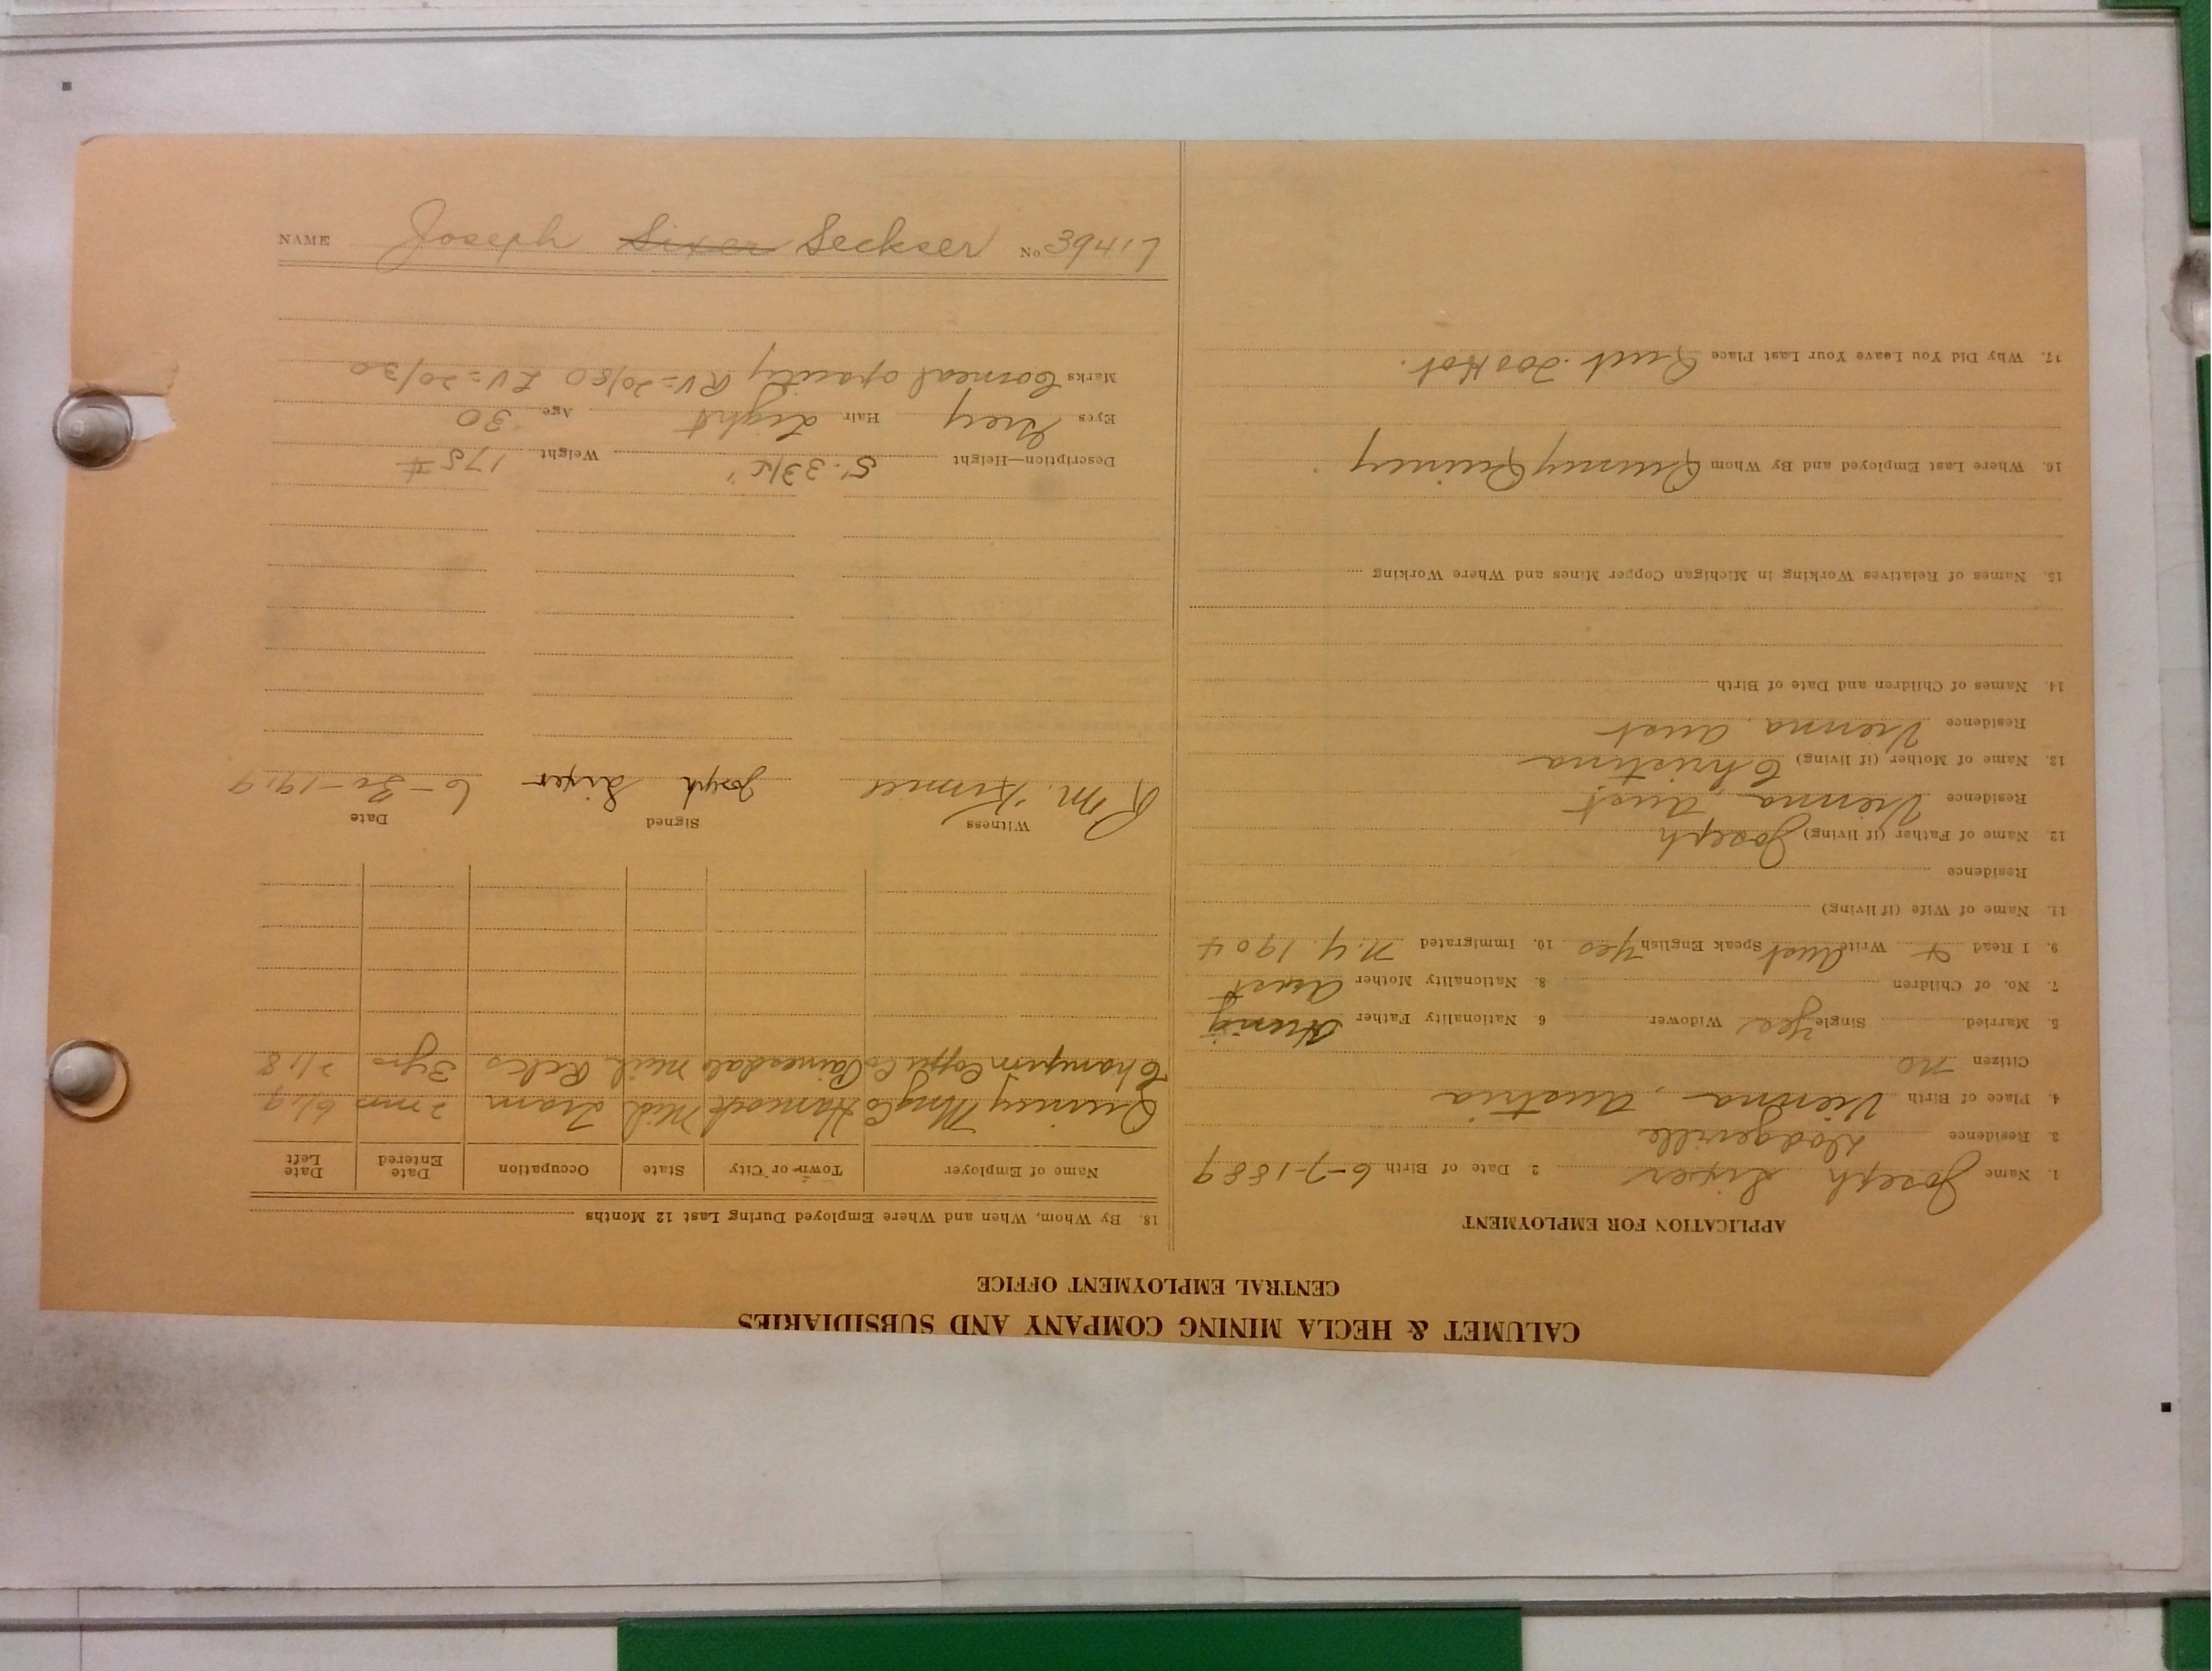 CALUMET & HECLA MINING COMPANY AND SUBSIDIARIES
CENTRAL EMPLOYMENT OFFICE
APPLICATION FOR EMPLOYMENT
1. Name Joseph Sixer 2 Date of Birth 6-7-1889
3 Residence Dodgeville
4. Place of Birth Vienna, Austria
Citizen no
5 Married Single Yes Widower 6. Nationality Father
7. No. of Children 8. Nationality Mother Aust
9. I Read + Write Aust Speak English Yes 10. Immigrated N.Y. 1904
11. Name of Wife (if living)
Residence
12 Name of Father (if living) Joseph
Residence Vienna, Aust
13. Name of Mother (if living) Christina
Residence Vienna, Aust
14. Names of Children and Date of Birth
15. Names of Relatives Working in Michigan Copper Mines and Where Working
16. Where Last Employed and By Whom Quincy Quincy
17. Why Did You Leave Your Last Place Quit. Too Hot.
18. By Whom, When and Where Employed During Last 12 Months
Name of Employer Town or City State Occupation Date Entered Date Left
Quincy Mng Co Hancock Mich Tram 2 mos 6/19
Champion Copper Co Painesdale Mich 3 yrs 2/18
Witness Signed Date
R. M. Joseph Sixer 6-30-1919
Description—Height 5'. 3 3/4" Weight 175 #
Eyes Grey Hair Light Age 30
Marks Corneal opacity RV=20/80 LV=20/30
NAME Joseph Sixer Seckser No 39417